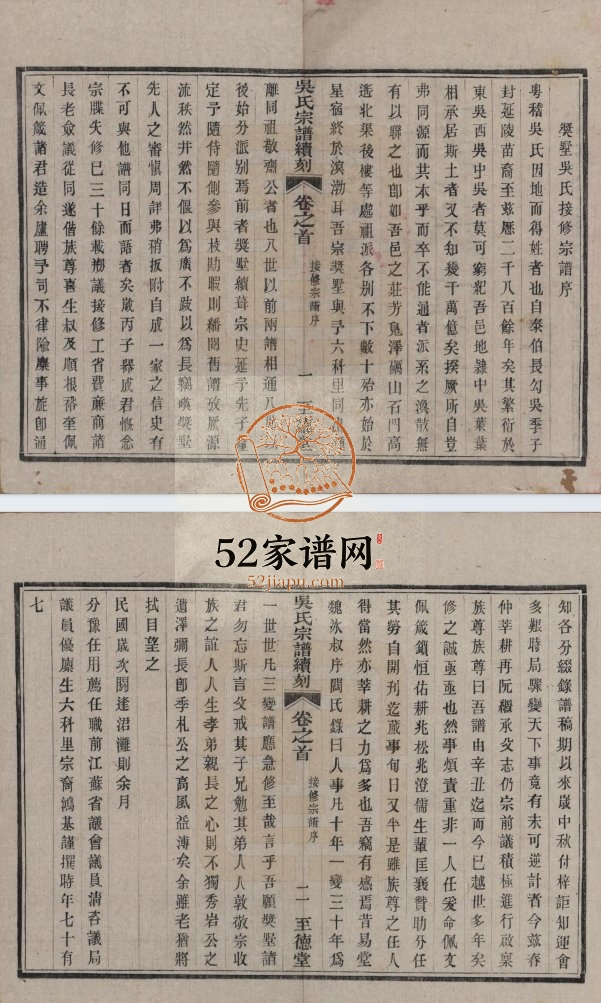 奬墅吳氏接修宗譜序
粵稽吳氏因地而得姓者也自泰伯長勾吳季子
封延陵苗裔至茲歷二千八百餘年矣其繁衍於
東吳西吳中吳者莫可窮紀吾邑地隷中吳葉葉
相承居斯土者又不知幾千萬億矣揆厥所自豈
弗同源而共本乎而卒不能通者派系之渙散無
有以聯之也卽如吾邑之莊芳鳧澤礪山石門高
遶北渠後樓等處祖派各別不下數十殆亦始於
星宿終於溟渤耳吾宗奬墅與予六科里同
吳氏宗譜續刻
卷之首
接修宗譜序
一
至
離同祖敬齋公者也八世以前兩譜相通八
後始分派别焉前者奬墅續葺宗史延予先子
定予隨侍隨側參與校勘暇則繙閱舊譜攷厥源
流秩然井然不偎以爲廣不跂以爲長竊嘆奬墅
先人之審愼周詳弗稍扳附自成一家之信史有
不可與他譜同日而語者矣歲丙子器成君慨念
宗牒失修已三十餘載擬議接修工省費廉商諸
長老僉議從同遂偕族尊喜生叔及順根裕奎佩
文佩箴諸君造余廬聘予司不律隃糜事旌卽通
知各分綴錄譜稿期以來歲中秋付梓詎知運會
多艱時局驟變天下事竟有未可逆計者今茲春
仲莘耕再阮繼承父志仍宗前議積極進行啟稟
族尊族尊曰吾譜由辛丑迄而今已越世多年矣
修之誠亟亟也然事煩責重非一人任爰命佩文
佩箴鎖恒佑耕兆松兆澄儒生輩匡襄贊助分任
其勞自開刋迄蕆事旬日又半是雖族尊之任人
得當然亦莘耕之力爲多也吾竊有感焉昔易堂
魏氷叔序閻氏錄曰人事凡十年一變三十年爲
吳氏宗譜續刻
卷之首
接修宗譜序
二
至德堂
一世世凡三變譜應急修至哉言乎吾願奬墅諸
君勿忘斯言父戒其子兄勉其弟人人敦敬宗收
族之誼人人生孝弟親長之心則不獨秀岩公之
遺澤彌長卽季札公之高風益溥矣余雖老猶將
拭目望之
民國歲次閼逢涒灘則余月
分豫任用薦任職前江蘇省議會議員淸咨議局
議員優廩生六科里宗裔鴻基謹撰時年七十有
七
52家谱网
52jiapu.com